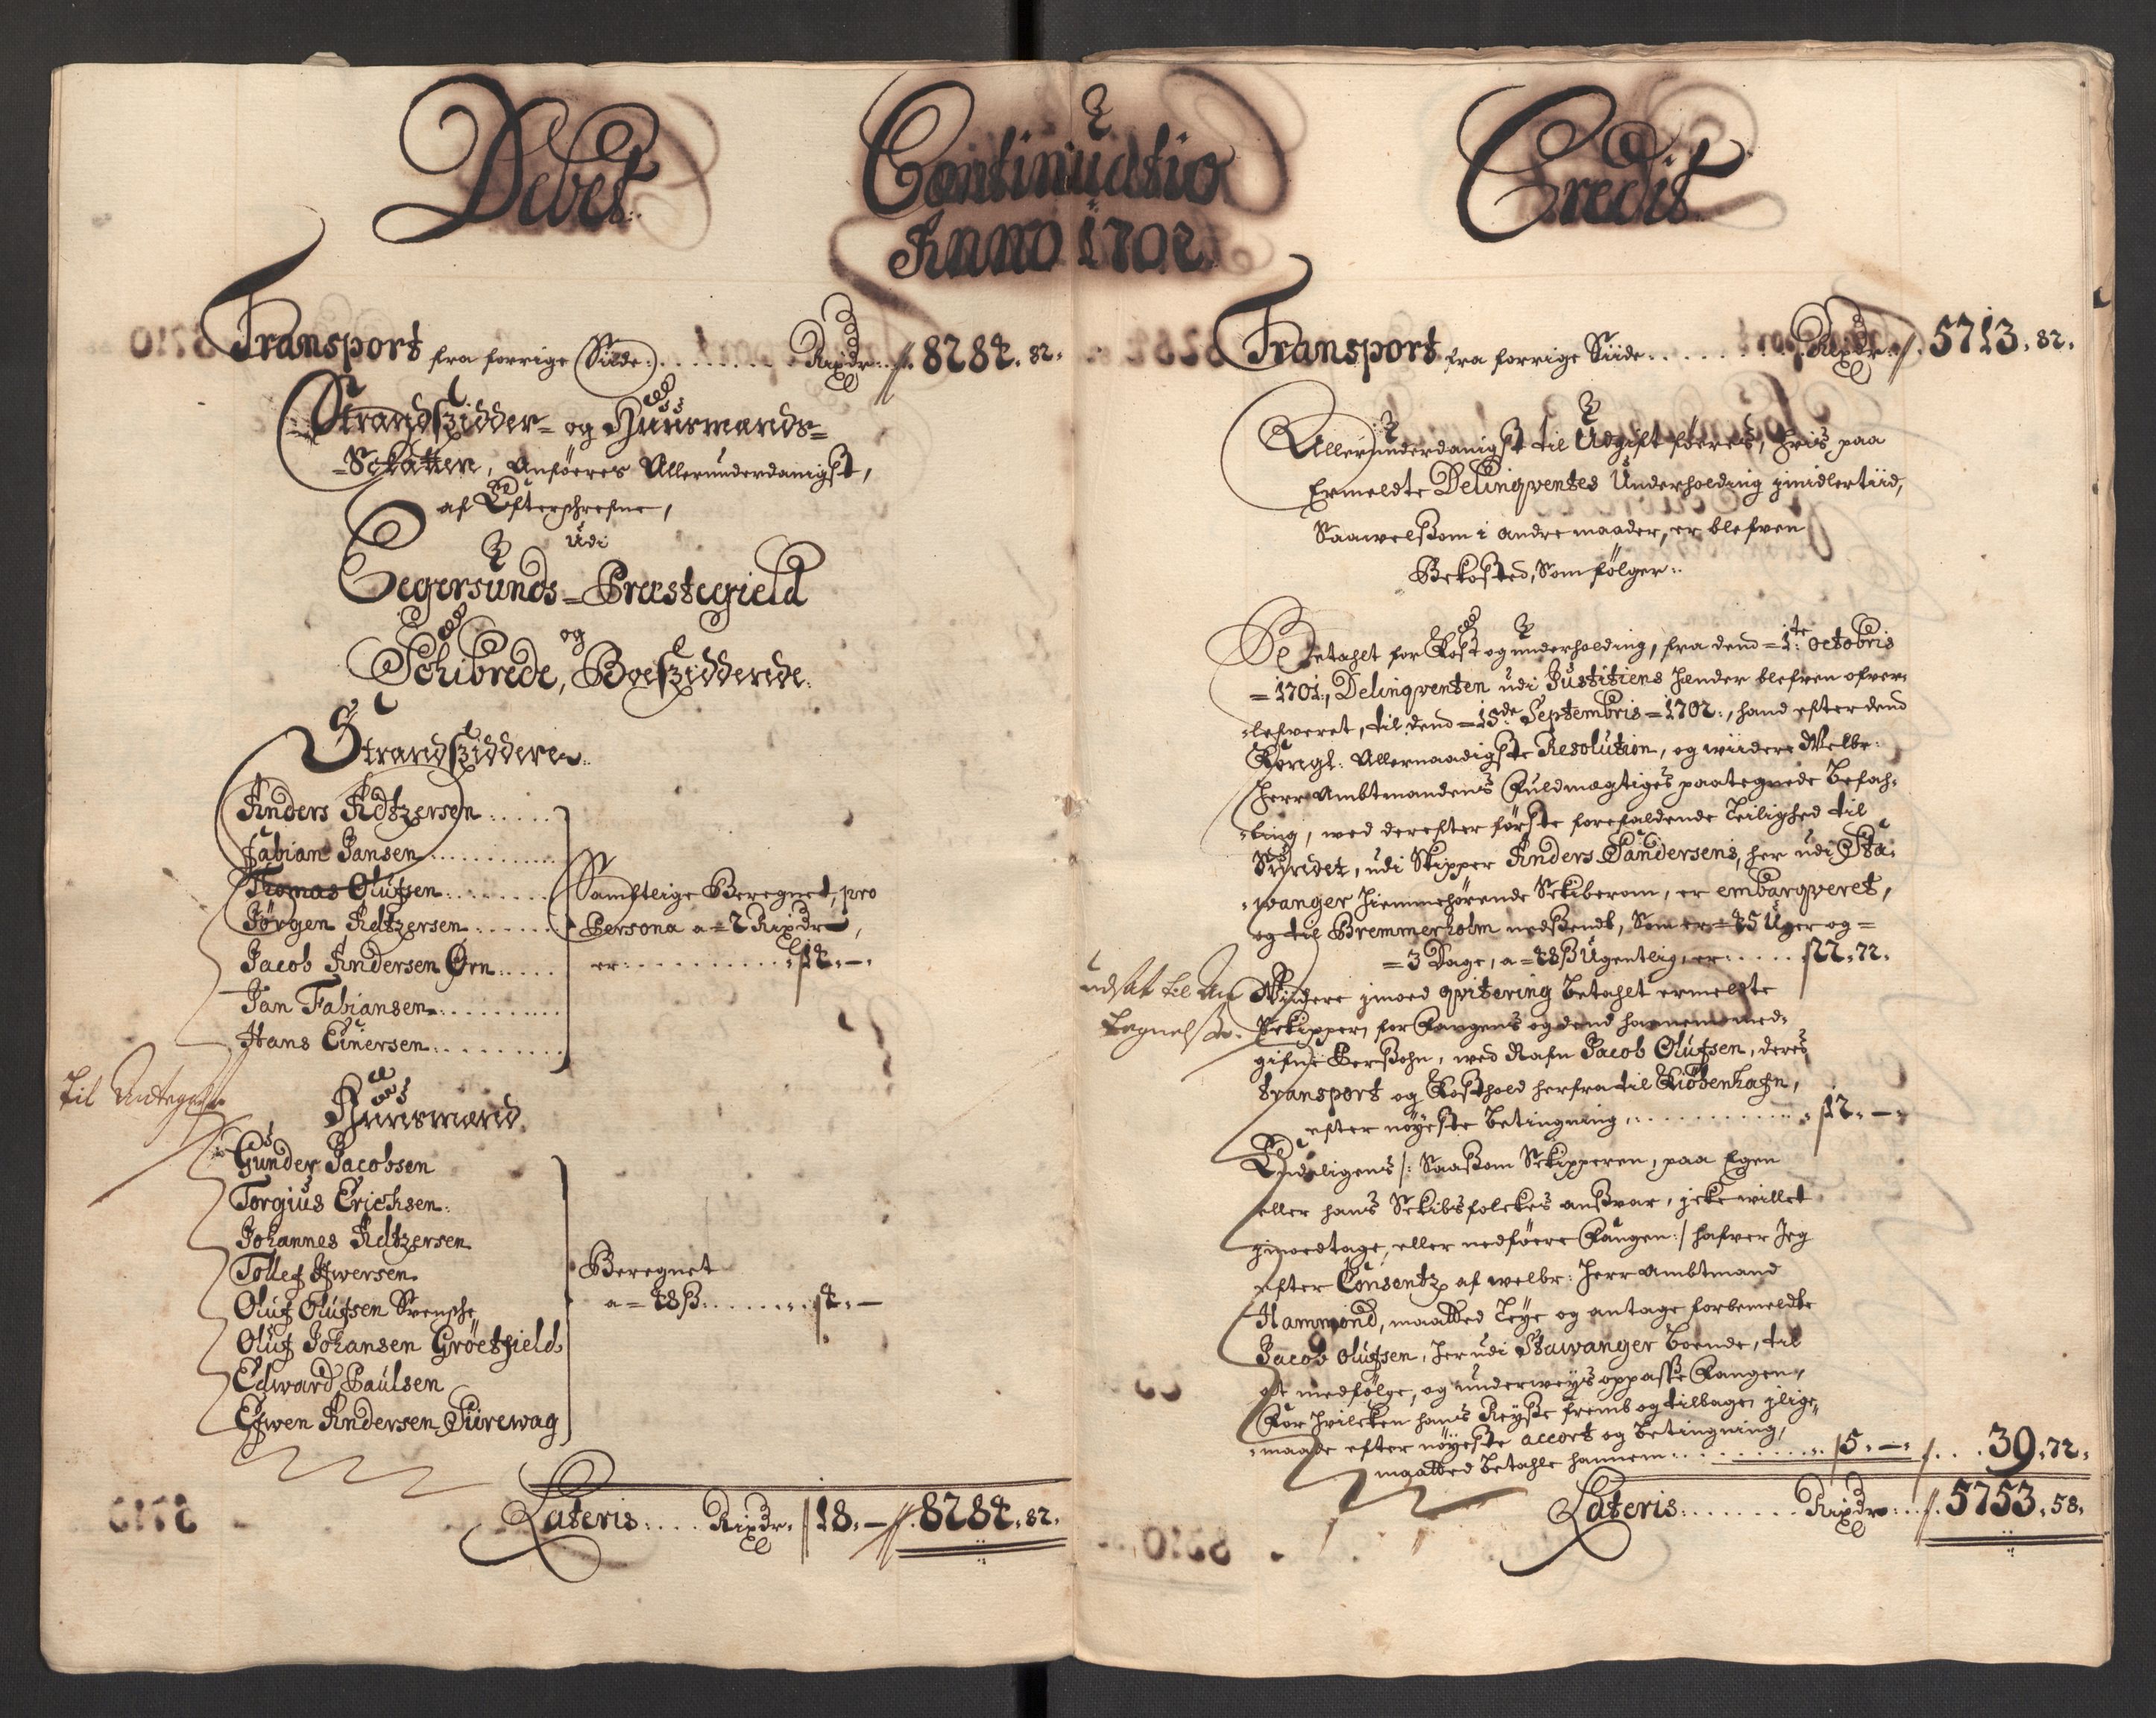 Debet
Continuatio
Anno 1702
Transport fra forrige Siide: Rixdr: 8284. 82.
Strandsidder- og Huusmands-
Schatten, Anføeres Allerunderdanigst,
af Efterschrefne,
udi
Eegersunds-Præstegield
og
Schibrede, Boesiddende.
Strandsiddere.
Anders Adtzersen
Fabian Jansen
Thomas Olufsen
Jørgen Adtzersen
Jacob Andersen Ørn
Jan Fabiansen
Hans Einersen
Samptlige Beregnet, pro
Persona a=2 Rixdr,
er: 14. —.
til Antegn
Huusmænd.
Gunder Jacobsen
Torgius Erichsen.
Johannes Adtzersen
Tollef Ifwersen.
Oluf Olufsen Svensche
Oluf Johansen Grøetfield.
Edward Paulsen
Efwen Andersen Siirewag
Beregnet
a=48ß. 4. —
Lateris: Rixdr. 18. — 8284. 82.
Credit
Transport fra forrige Siide Rixdr: 5713. 82.
Allerunderdanigst til Udgift føeres, hvis paa
Ermeldte Delinqventes Underholding imidlertiid,
Saavelsom i andre maader, er blefven
Bekosted, Som følger:
Betahlt for Kost og underholding, fra dend=1te: octobris
=1701:, Delinqventen udi Justitiens hænder blefven ofver-
-lefveret, til dend=15de Septembris=1702:, hand efter dend
Kongl: Allernaadigste Resolution, og wiidere Welbr:
Herr Ambtmandens Fuldmægtiges paategnede befah-
-ling, med derefter første forefaldende Leilighed til
Søridet, udi Skipper Anders Sandersens, her udi Sta-
-wanger hiemmehørende Schiberom, er embarqveret,
og til Bremmerholm nedsendt, Som er=45 Uger og=
=3 Dage, a=48ß Ugentlig, er: 22. 72.
udsat til An
tegnelse.
Wiidere imod qvitering betahlt ermeldte
Schipper, for Fangens og dend hannem med-
gifne Persohn, wed Nafn Jacob Olufsen, deres
transport og Kosthold herfra til Kiøbenhafn,
efter nøyeste betingning 12. —.
Endeligens /: Saasom Schipperen, paa Egen
eller hans Schibsfolckes ansvar, icke willet
imodtage, eller nedføere Fangen:/ hafver Jeg
efter Consentz af welbr: Herr Ambtmand
Hammond, maatted leye og antage forbemeldte
Jacob Olufsen, her udi Stawanger boende, til
at medfølge, og underweys oppasse Fangen,
For hvilcken hans Reyse fremb og tilbage, i lige-
-maade efter nøyeste accort og betingning,
maatted betahle hannem 5. —. 39. 72.
Lateris: Rixdr: 5753. 58.